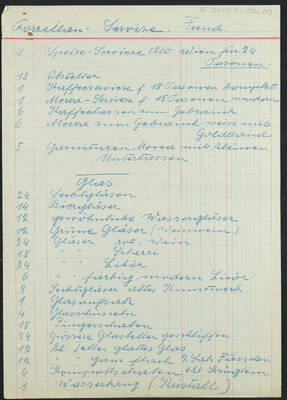 Porzellan - Servise. Freud.
1 Speise-Service Alt Wien für 24 Personen.
18 Obsteller
1 Kaffeeservise f 18 Personen komplett
1 Mocca-Service f 15 Personen modern
6 Kaffeetassen zum Gebrauch
6 Mocca zum Gebrauch weiss mit Goldband
5 Garnituren Mocca mit kleinen Untertassen
Glas
24 Sektgläser
14 Biergläser
12 gewöhnliche Wassergläser
12 Grüne Gläser (Weisswein)
24 Gläser rot. Wein
18 " " Scherri
24 " " Likör
6 " " färbig modern Likör
8 Sektgläser altes Kunstwerk
1 Glasaufsatz
4 Glasschüsseln
18 Fingerschalen
24 Grössere Glasteller geschliffen
12 kl. Teller glattes Glas
12 " ganz flach
6 Kompottschalen
1 Wasserkrug (Kristall)